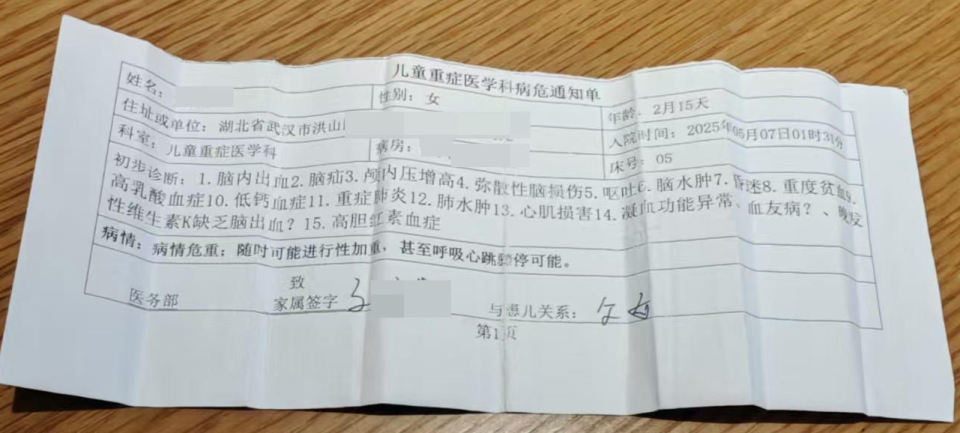 儿童重症医学科病危通知单
姓名： 性别：女 年龄：2月15天
住址或单位：湖北省武汉市洪山 入院时间：2025年05月07日01时31分
科室：儿童重症医学科 病房： 床号：05
初步诊断：1.脑内出血2.脑疝3.颅内压增高4.弥散性脑损伤5.呕吐6.脑水肿7.昏迷8.重度贫血9.
高乳酸血症10.低钙血症11.重症肺炎12.肺水肿13.心肌损害14.凝血功能异常、血友病？、晚发
性维生素K缺乏脑出血？15.高胆红素血症
病情：病情危重；随时可能进行性加重，甚至呼吸心跳暂停可能。
致
医务部 家属签字 与患儿关系：父女
第1页